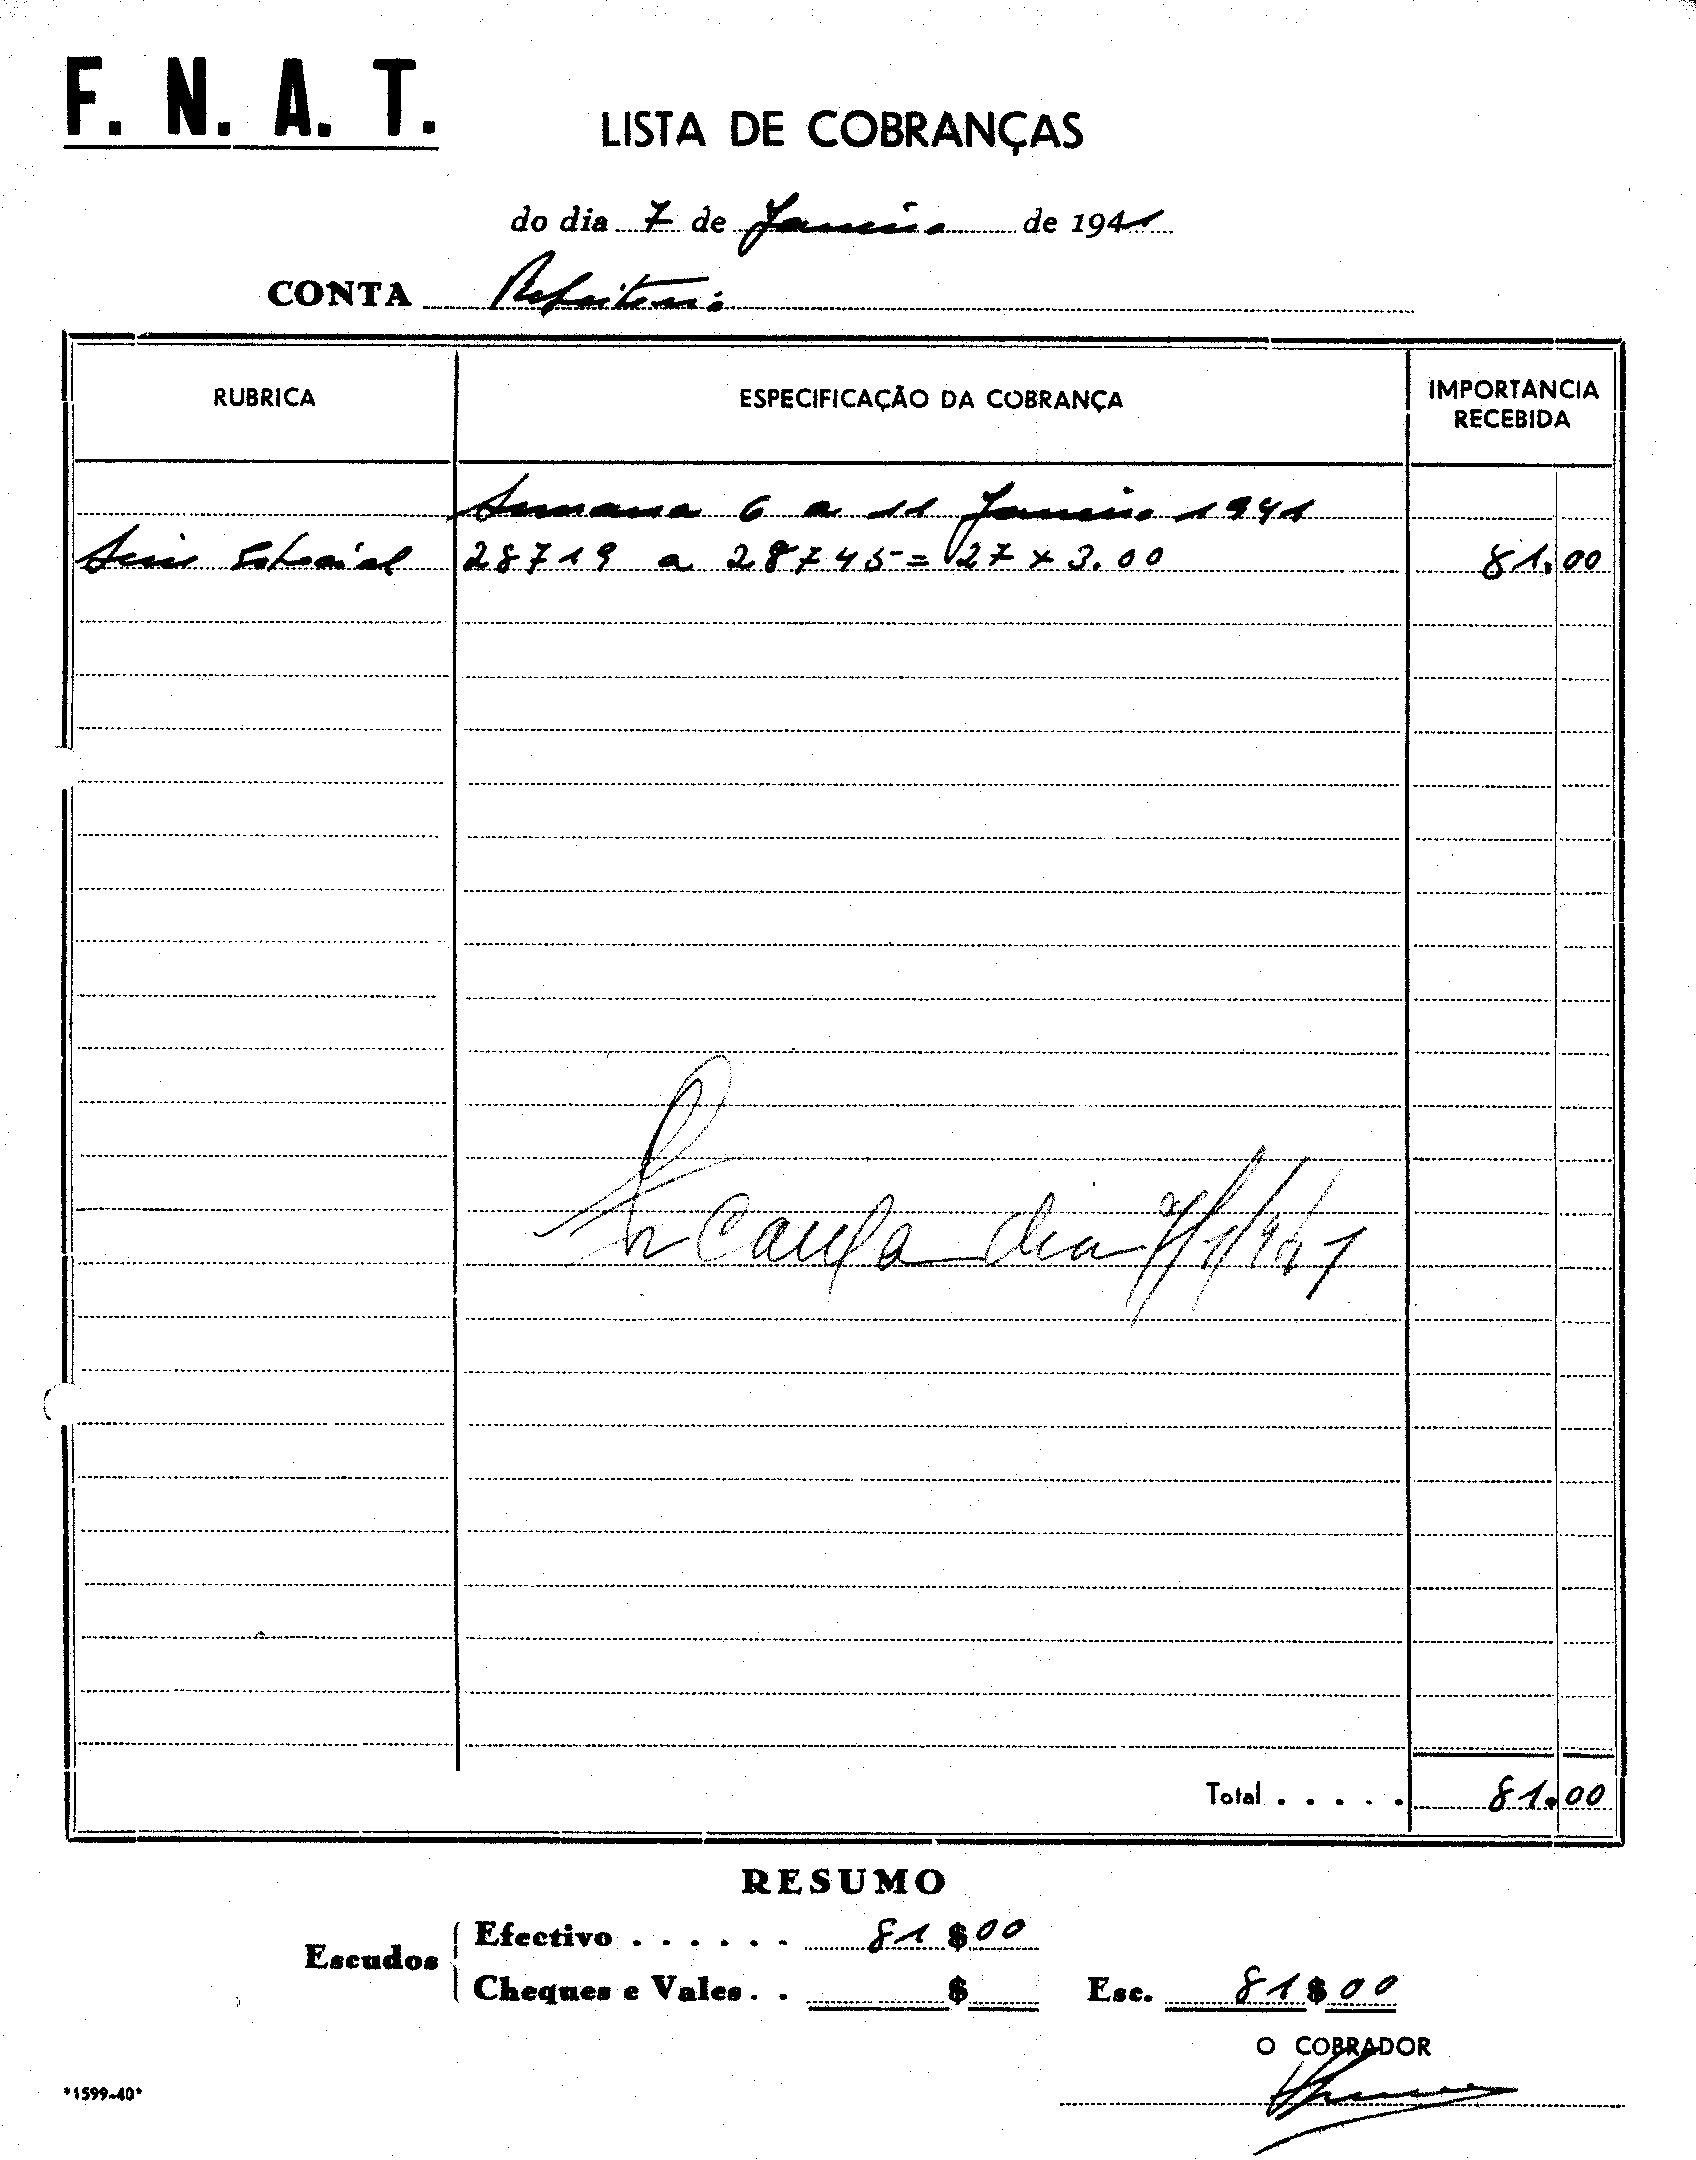 F. N. A. T.
LISTA DE COBRANÇAS
do dia 7 de Janeiro de 1941
CONTA Refeitorio
RUBRICA ESPECIFICAÇÃO DA COBRANÇA IMPORTANCIA RECEBIDA
Semana 6 a 11 Janeiro 1941
28719 a 28745 = 27 x 3.00 81.00
dia 7/1/941
Total . . . . . 81.00
RESUMO
Escudos
Efectivo . . . . . . 81$00
Cheques e Vales . . $ Esc. 81$00
O COBRADOR
*1599-40*